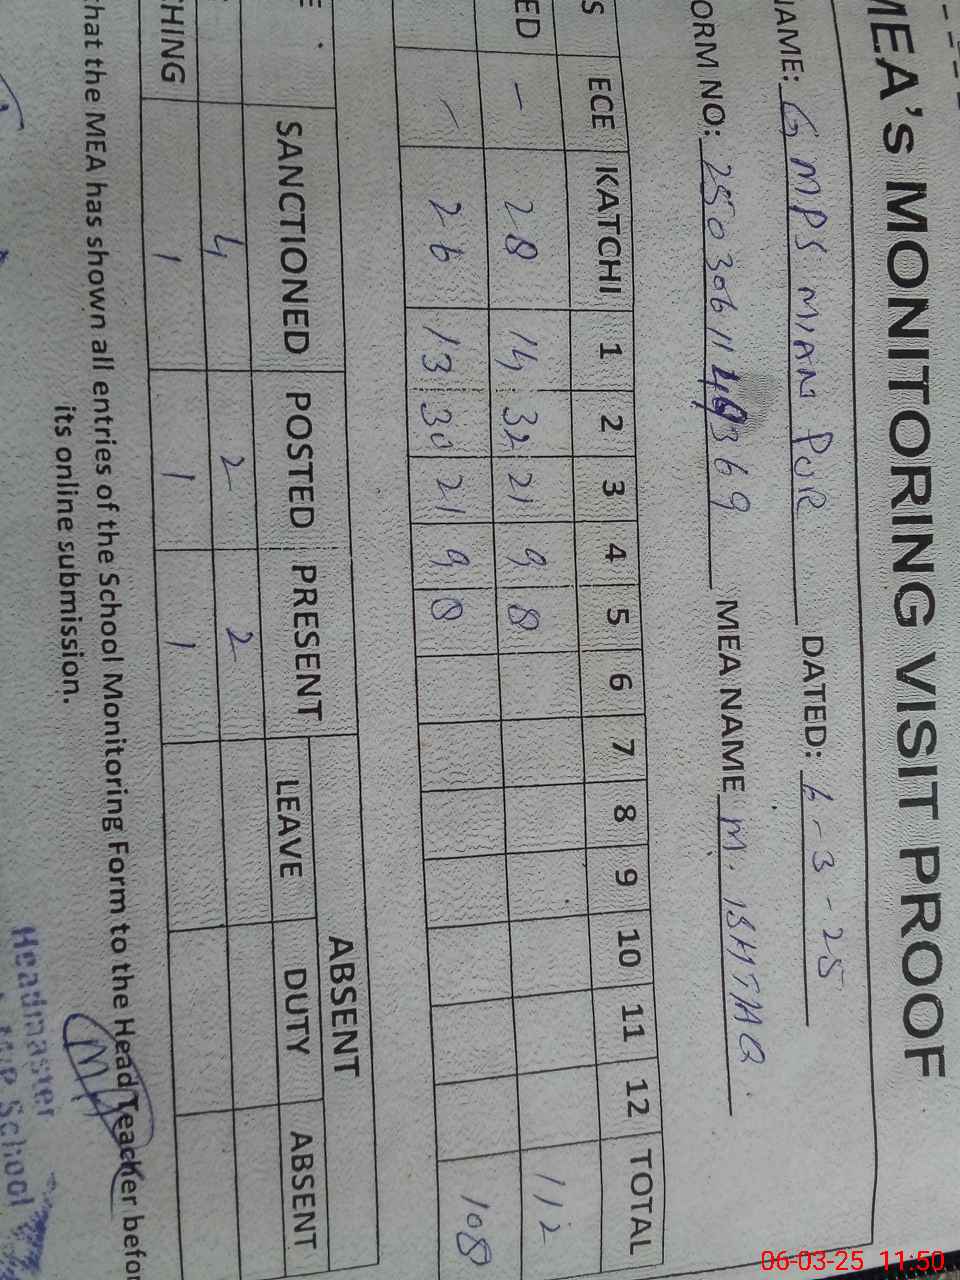 MEA's MONITORING VISIT PROOF
NAME: GMPS MIAN PUR DATED: 6-3-25
ORM NO: MEA NAME M. ISHTIAQ
S ECE KATCHI 1 2 3 4 5 6 7 8 9 10 11 12 TOTAL
ED - 28 14 32 21 9 8 112
- 26 13 30 21 9 8 108
E SANCTIONED POSTED PRESENT ABSENT
LEAVE DUTY ABSENT
4 2 2
HING 1 1 1
that the MEA has shown all entries of the School Monitoring Form to the Head Teacher befor
its online submission.
Headmaster
School
06-03-25 11:50